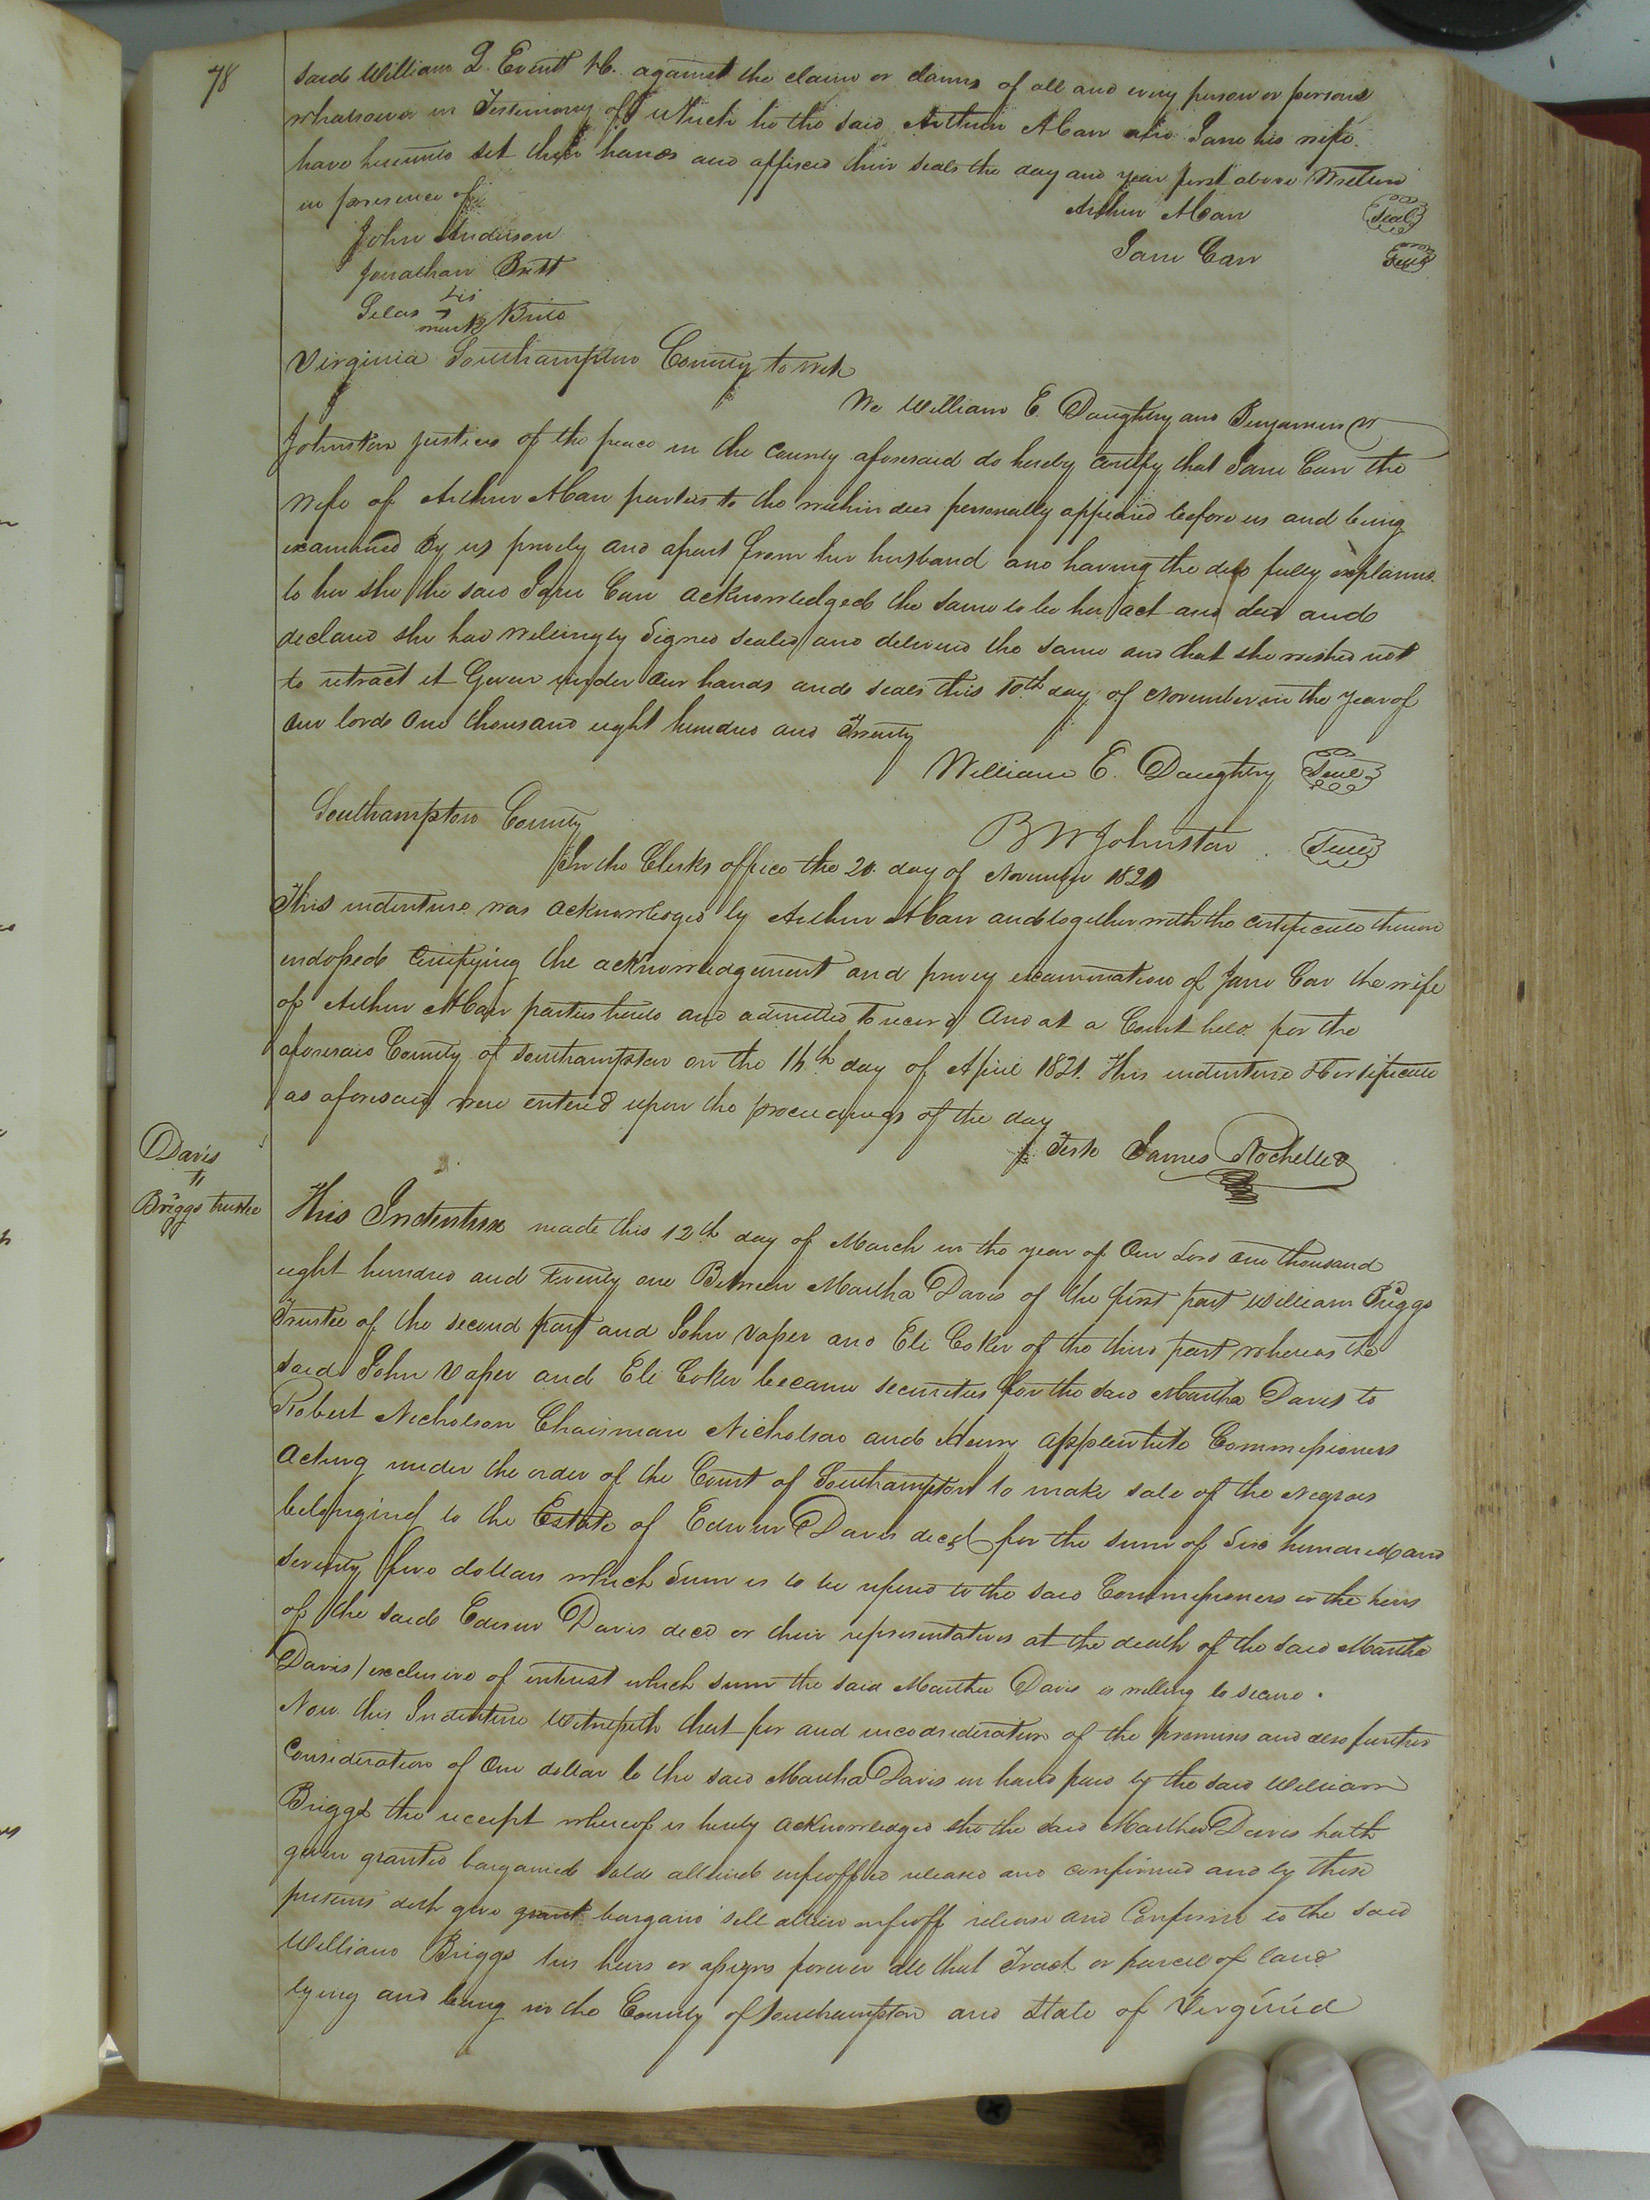 78
said William Q. Everitt &c. against the claim or claims of all and every person or persons
whatsoever in Testimony of which he the said Arthur A Carr also Jane his wife
have hereunto set their hands and affixed their seals the day and year first above Written
in presence of
Arthur A Carr Seal
John Anderson
Jane Carr Seal
Jonathan Britt
his
Silas + Britt
mark
Virginia Southampton County to wit
We William E. Daughtry and Benjamin W
Johnston justices of the peace in the County aforesaid do hereby certify that Jane Carr the
wife of Arthur A Carr parties to the within deed personally appeared before us and being
examined By us privily and apart from her husband and having the deed fully explained
to her she the said Jane Carr acknowledged the same to be her act and deed and
declared she had willingly Signed sealed and delivered the same and that she wished not
to retract it Given under Our hands and seals this 10th day of November in the Year of
Our lord One thousand eight hundred and Twenty
William E. Daughtry Seal
Southampton County
B W Johnston Seal
In the Clerks office the 20 day of November 1820
This indenture was acknowledged by Arthur A Carr and together with the certificate thereon
indorsed Certifying the acknowledgement and privy examination of Jane Carr the wife
of Arthur A Carr parties hereto and admitted to record And at a Court held for the
aforesaid County of Southampton on the 16th day of April 1821. This indenture & Certificate
as aforesaid were entered upon the proceedings of the day
Teste James Rochelle
Davis
To
Briggs trustee
This Indenture made this 12th day of March in the year of Our Lord One thousand
eight hundred and twenty one Between Martha Davis of the first part William Briggs
Trustee of the second part and John Vaper and Eli Coker of the third part whereas the
said John Vaper and Eli Coker became securities for the said Martha Davis to
Robert Nicholson Chairman Nicholson and Henry Applewhite Commissioners
Acting under the order of the Court of Southampton to make sale of the Negroes
belonging to the Estate of Edwin Davis decd for the sum of Six hundred and
seventy five dollars which Sum is to be repaid to the said Commissioners or the heirs
of the said Edwin Davis decd or their representatives at the death of the said Martha
Davis exclusive of interest which sum the said Martha Davis is willing to secure.
Now this Indenture Witnesseth that for and incodsideration of the premises and also further
Consideration of One dollar to the said Martha Davis in hand paid by the said William
Briggs the receipt whereof is hereby acknowledged she the said Martha Davis hath
given granted bargained sold aliend enfeoffed released and confirmed and by these
presents doth give grant bargain sell alien enfeoff release and Confirm to the said
William Briggs his heirs or assigns forever all that Tract or parcel of land
lying and being in the County of Southampton and State of Virginia